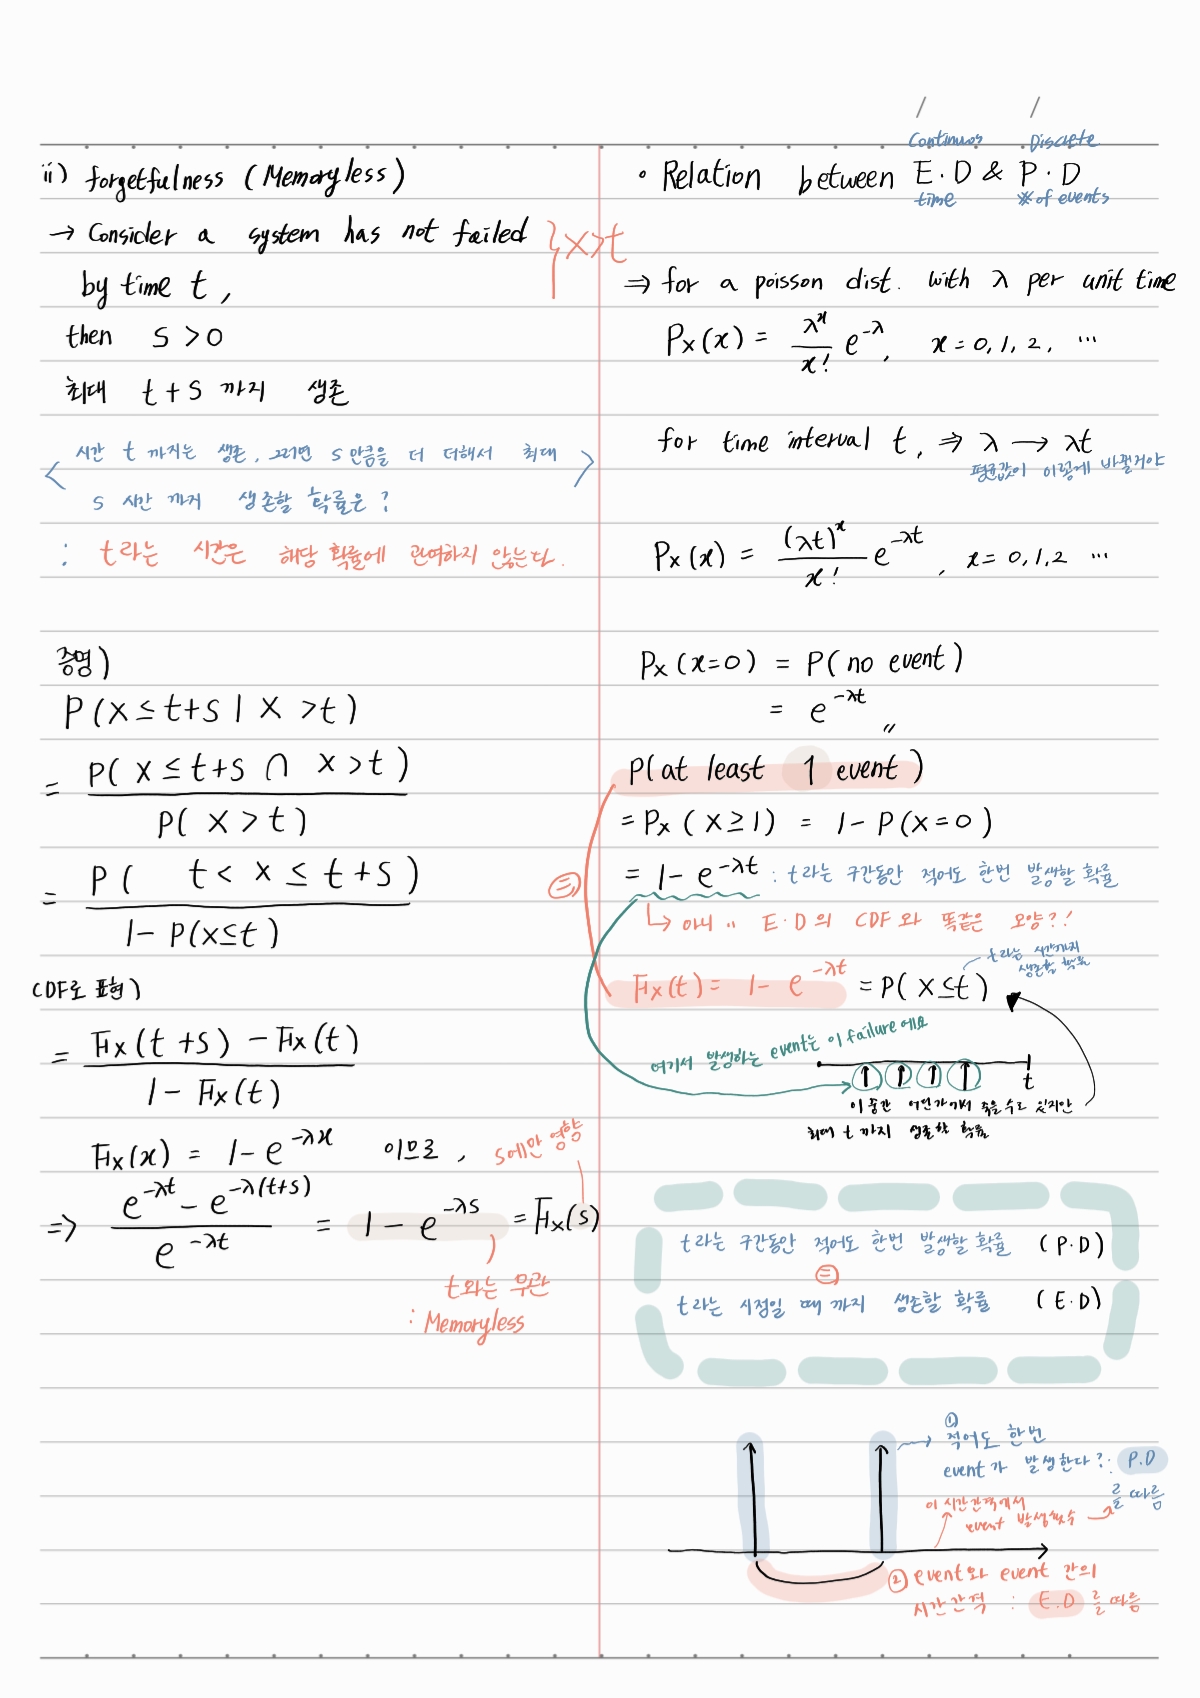 ii) forgetfulness (Memoryless)
→ Consider a system has not failed } X>t
by time t,
then s > 0
최대 t+s 까지 생존
< 시간 t 까지는 생존, 그러면 s만큼을 더 더해서 최대 >
s 시간 까지 생존할 확률은?
: t라는 시간은 해당 확률에 관여하지 않는다.
증명)
P(X≤t+s | X >t)
= P( X≤t+s ∩ X>t ) / P( X > t )
= P( t < X ≤ t+s ) / 1- P(X≤t)
CDF로 표현)
= Fx(t+s) - Fx(t) / 1- Fx(t)
Fx(x) = 1- e^-λx 이므로, s에만 영향
=> e^-λt - e^-λ(t+s) / e^-λt = 1 - e^-λs = Fx(s)
t와는 무관
: Memoryless
Continuos Discrete
• Relation between E.D & P.D
time # of events
⇒ for a poisson dist. with λ per unit time
Px(x) = λ^x / x! e^-λ, x = 0, 1, 2, ...
for time interval t, ⇒ λ → λt
평균값이 이렇게 바뀔거야
Px(x) = (λt)^x / x! e^-λt, x = 0,1,2 ...
Px(x=0) = P( no event )
= e^-λt 〃
P(at least 1 event)
= Px(X≥1) = 1- P(X=0)
= 1- e^-λt : t라는 구간동안 적어도 한번 발생할 확률
↳ 아니 .. E.D의 CDF와 똑같은 모양?!
t라는 시간까지
생존할 확률
Fx(t) = 1- e^-λt = P( X≤t )
여기서 발생하는 event는 이 failure에요
t
이 중간 어딘가에서 죽을 수도 있지만
최대 t 까지 생존할 확률
t라는 구간동안 적어도 한번 발생할 확률 (P.D)
=
t라는 시점일 때 까지 생존할 확률 (E.D)
① 적어도 한번
event가 발생한다?: P.D
를 따름
이 시간간격에서
event 발생횟수
② event와 event 간의
시간간격 : E.D 를 따름